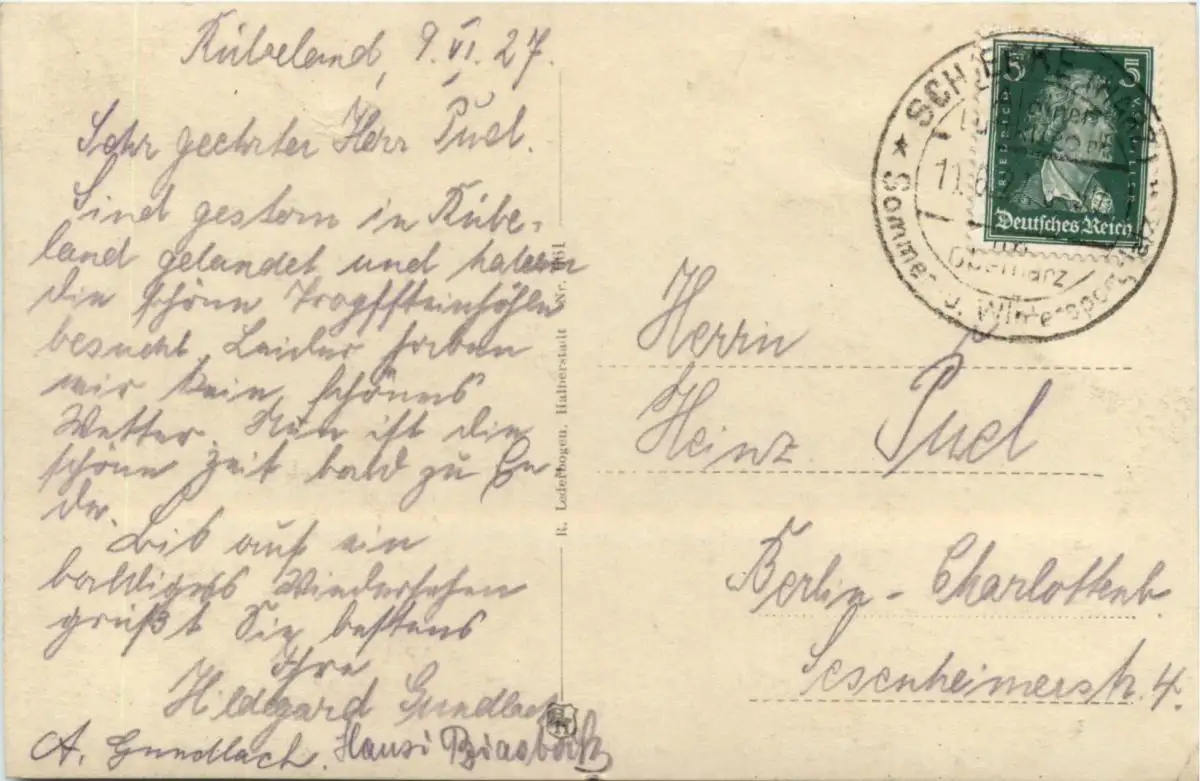 Rübeland, 9. VI. 27.
Sehr geehrter Herr Puel.
Sind gestern in Rübe-
land gelandet und haben
die schöne Tropfsteinhöhle
besucht. Leider haben
wir kein schönes
Wetter. Nun ist die
schöne Zeit bald zu En
de. Bis auf ein
baldiges Wiedersehen
grüßt Sie bestens
Ihre
Hildegard Gundlach
A. Gundlach. Hansi
R. Lederbogen, Halberstadt Nr.
5 5
FRIEDRICH V. SCHILLER
Deutsches Reich
SCHIERKE (HARZ)
11.6.27
Oberharz
Sommer u. Wintersportplatz
Herrn
Heinz Puel
Berlin - Charlottenb.
Sesenheimerstr. 4.